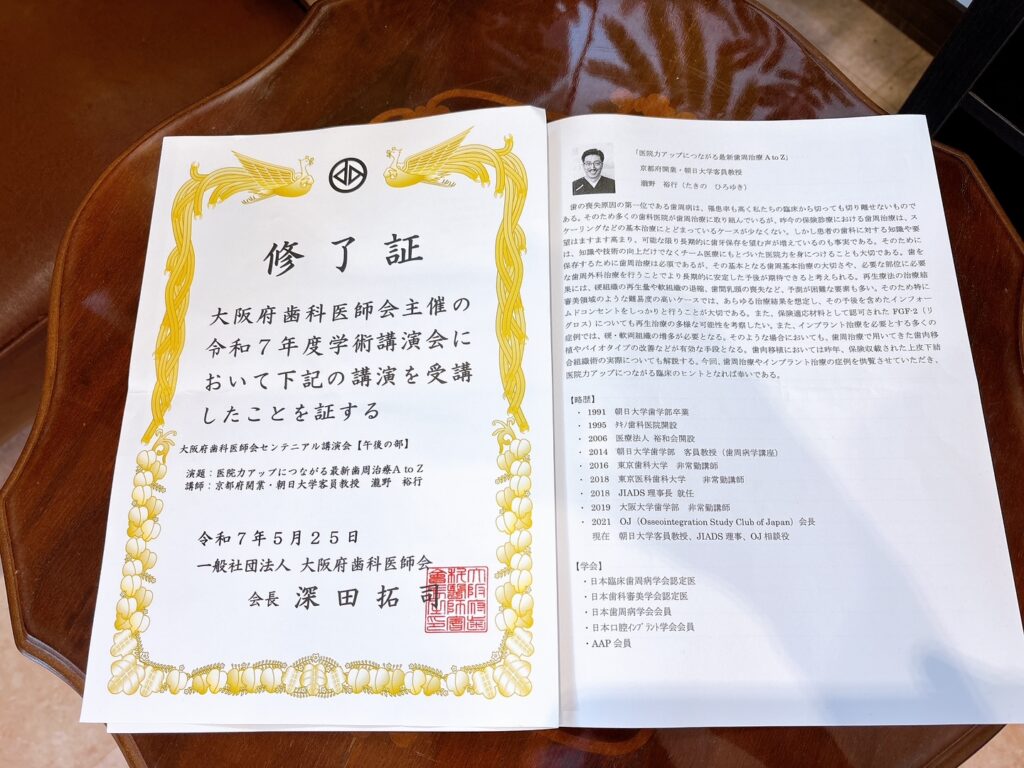 修了証
大阪府歯科医師会主催の
令和7年度学術講演会に
おいて下記の講演を受講
したことを証する
大阪府歯科医師会センテニアル講演会【午後の部】
演題:医院力アップにつながる最新歯周治療A to Z
講師:京都府開業・朝日大学客員教授 瀧野 裕行
令和7年5月25日
一般社団法人 大阪府歯科医師会
会長 深田拓司
「医院力アップにつながる最新歯周治療 A to Z」
京都府開業・朝日大学客員教授
瀧野 裕行(たきの ひろゆき)
歯の喪失原因の第一位である歯周病は、罹患率も高く私たちの臨床から切っても切り離せないもので
ある。そのため多くの歯科医院が歯周治療に取り組んでいるが、昨今の保険診療における歯周治療は、ス
ケーリングなどの基本治療にとどまっているケースが少なくない。しかし患者の歯科に対する知識や要
望はますます高まり、可能な限り長期的に歯牙保存を望む声が増えているのも事実である。そのために
は、知識や技術の向上だけでなくチーム医療にもとづいた医院力を身につけることも大切である。歯を
保存するために歯周治療は必須であるが、その基本となる歯周基本治療の大切さや、必要な部位に必要
な歯周外科治療を行うことでより長期的に安定した予後が期待できると考えられる。再生療法の治療結
果には、硬組織の再生量や軟組織の退縮、歯間乳頭の喪失など、予測が困難な要素も多い。そのため特に
審美領域のような難易度の高いケースでは、あらゆる治療結果を想定し、その予後を含めたインフォー
ムドコンセントをしっかりと行うことが大切である。また、保険適応材料として認可された FGF-2(リ
グロス)についても再生治療の多様な可能性を考察したい。また、インプラント治療を必要とする多くの
症例では、硬・軟組織の増多が必要となる。そのような場合においても、歯周治療で用いてきた歯肉移
植やバイオタイプの改善などが有効な手段となる。歯肉移植においては昨年、保険収載された上皮下結
合組織術の実際についても解説する。今回、歯周治療やインプラント治療の症例を供覧させていただき、
医院力アップにつながる臨床のヒントとなれば幸いである。
【略歴】
・1991 朝日大学歯学部卒業
・1995 タキノ歯科医院開設
・2006 医療法人 裕和会開設
・2014 朝日大学歯学部 客員教授(歯周病学講座)
・2016 東京歯科大学 非常勤講師
・2018 東京医科歯科大学 非常勤講師
・2018 JIADS 理事長 就任
・2019 大阪大学歯学部 非常勤講師
・2021 OJ(Osseointegration Study Club of Japan)会長
現在 朝日大学客員教授、JIADS 理事、OJ 相談役
【学会】
・日本臨床歯周病学会認定医
・日本歯科審美学会認定医
・日本歯周病学会会員
・日本口腔インプラント学会会員
・AAP 会員